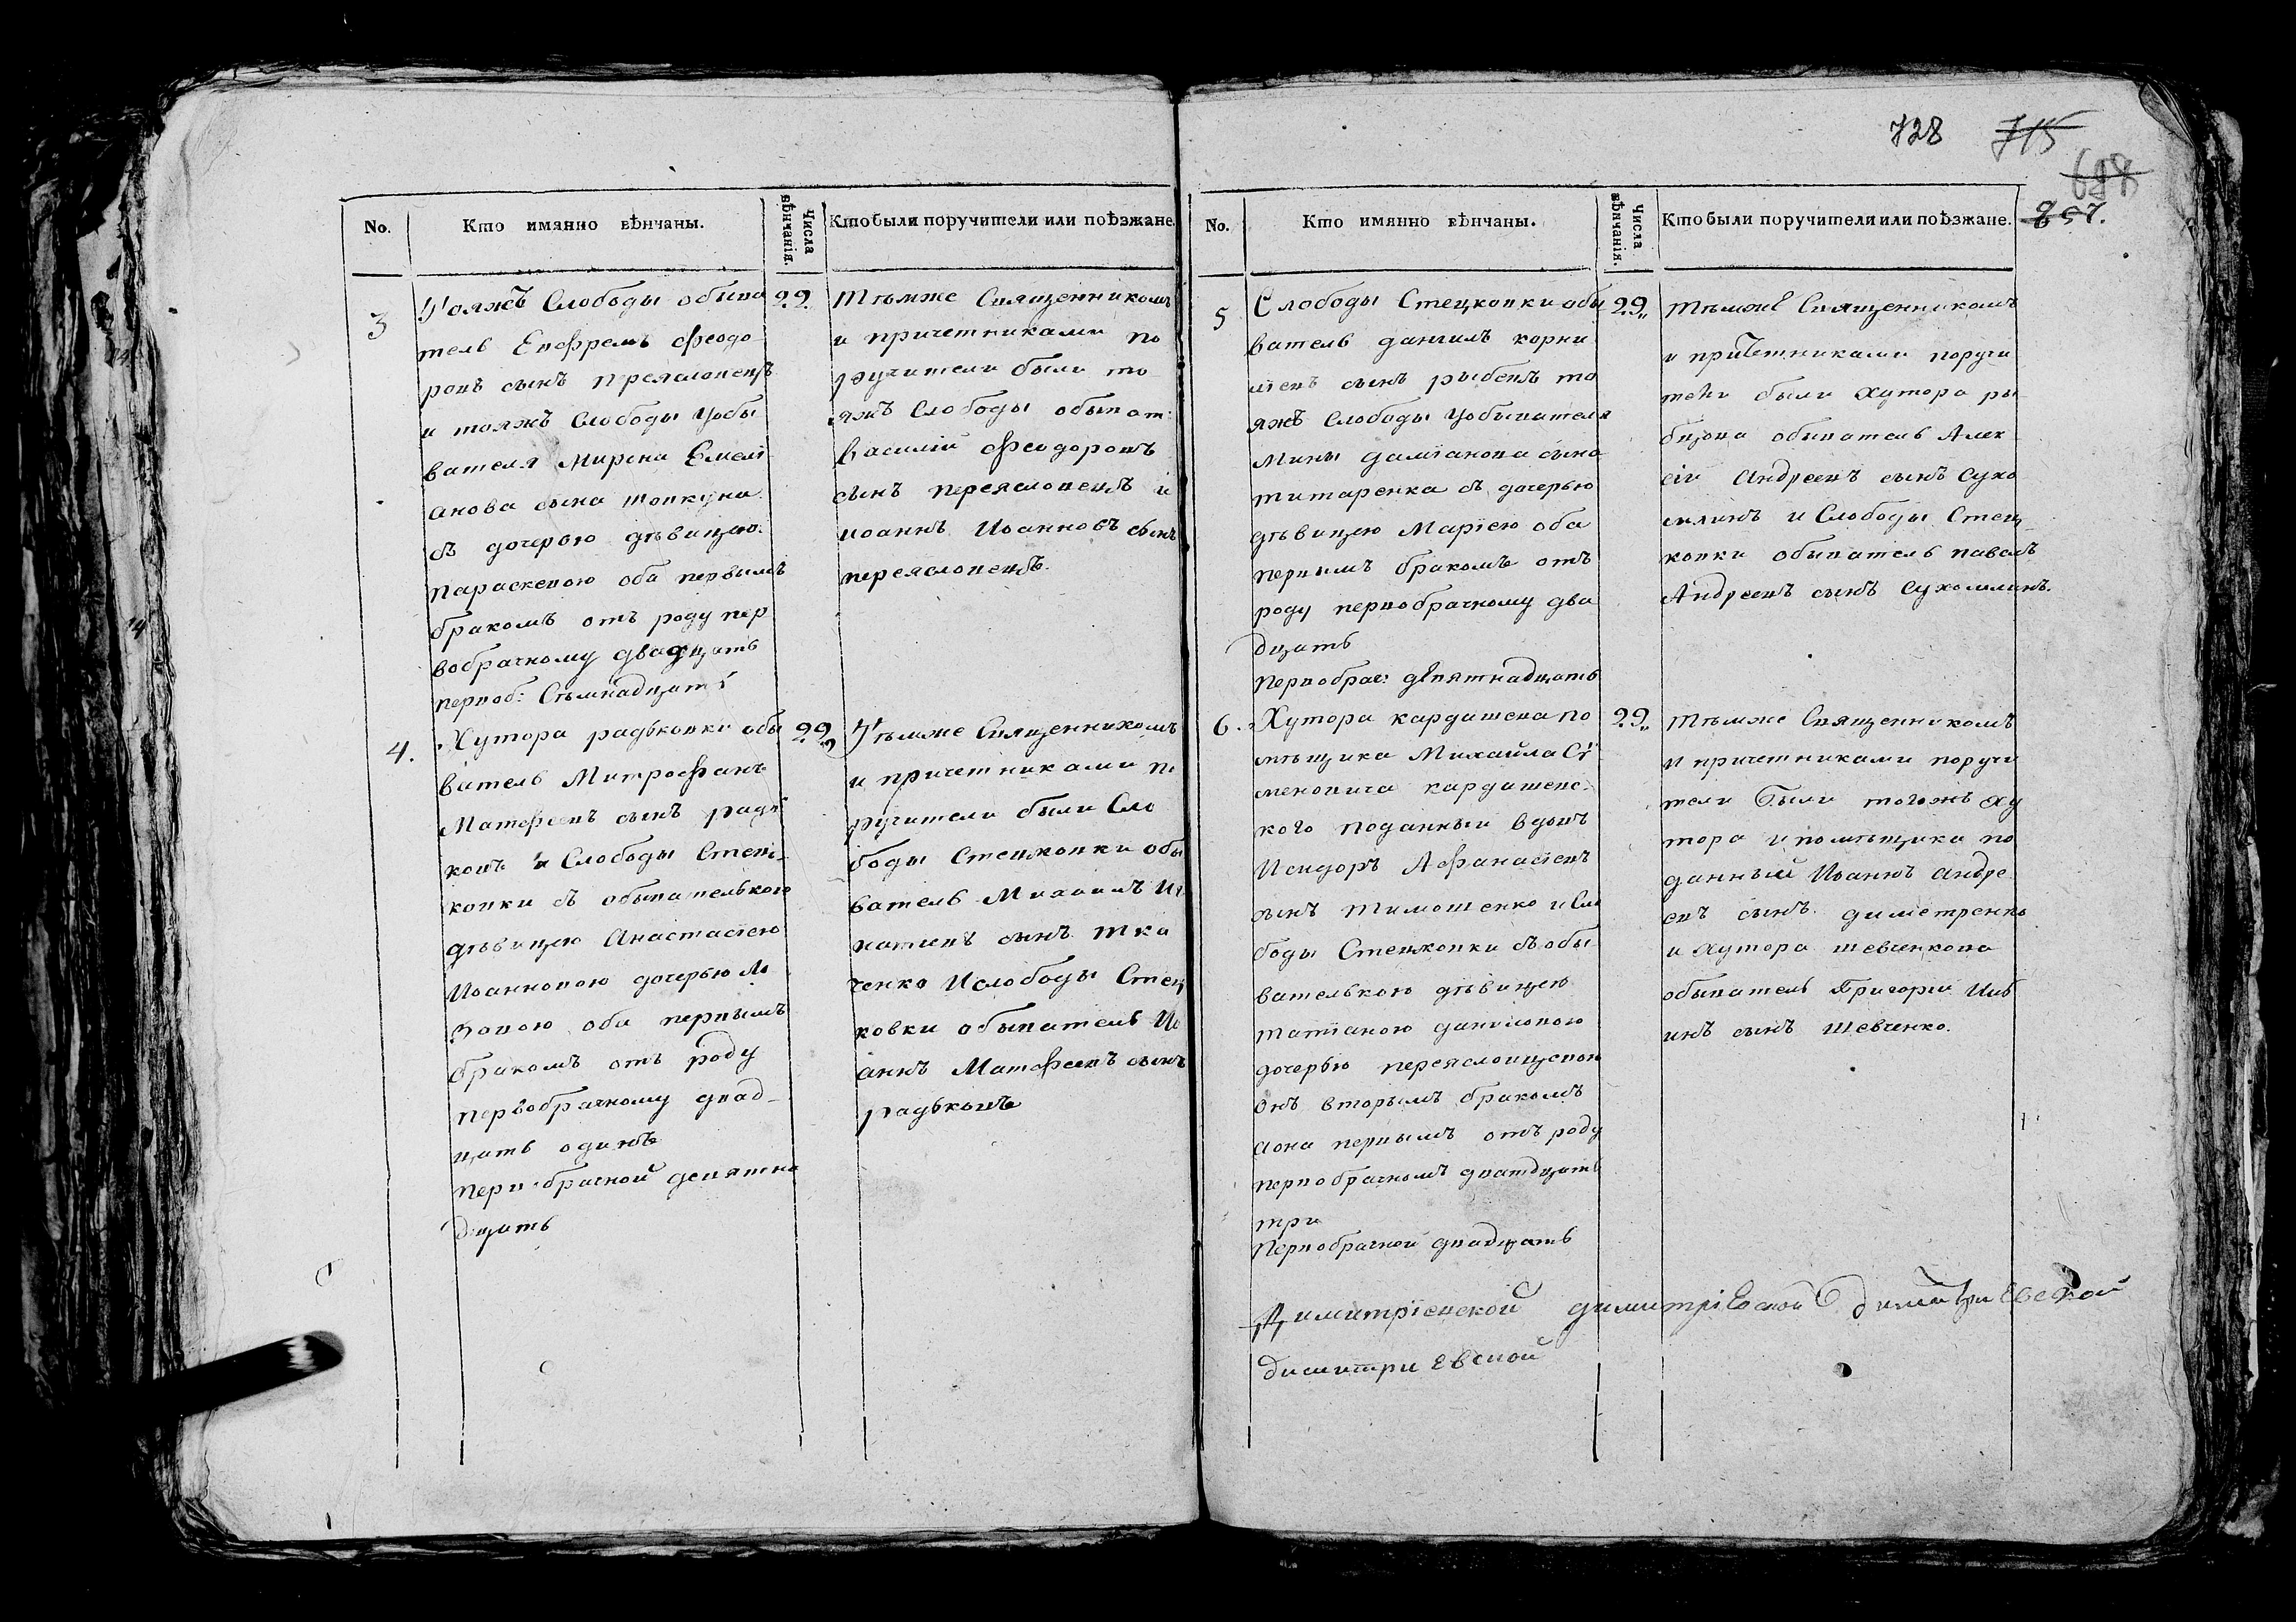 728 715
688
857.
No.
Кто имянно вѣнчаны.
Числа вѣнчанія.
Кто были поручители или поѣзжане.
3
Тояжъ Слободы обыва
тель Евфремъ Феодо
ровъ сынъ переясловецъ
и тояжъ Слободы Уобы
вателя Мирона Емелї
анова сына
съ дочерью дѣвицею
параскевою оба первымъ
бракомъ отъ роду пер
вобрачному двадцать
первоб: Сѣмнадцать
29
Тѣмже Священникомъ
и причетниками по
ручители были то
яжъ Слободы обыват:
василїй Феодоровъ
сынъ переясловецъ и
иоаннъ Иоанновъ сынъ
переясловецъ.
4.
Хутора радьковки обы
ватель Митрофанъ
Матфеевъ сынъ радь
ковъ и Слободы Стец
ковки съ обывателькою
дѣвицею Анастасїею
Иоанновою дочерью Ло
зовою оба первымъ
бракомъ отъ роду
первобрачному двад
цать одинъ
первобрачной девятна
дцать
29
Тѣмже Священникомъ
и причетниками по
ручители были Сло
боды Стецковки обы
ватель Михаилъ Иг
натиевъ сынъ тка
ченко И слободы Стец
ковки обыватель Ио
аннъ Матфеевъ сынъ
радьковъ
No.
Кто имянно вѣнчаны.
Числа вѣнчанія.
Кто были поручители или поѣзжане.
5
Слободы Стецковки обы
ватель данилъ корни
лїевъ сынъ рыбецъ то
яжъ Слободы Уобывателя
Мины дамїанова сына
титаренка съ дочерью
дѣвицею Марїею оба
первымъ бракомъ отъ
роду первобрачному два
дцать
первобрач: девятнадцать
29
Тѣмже Священникомъ
и причетниками поручи
тели были Хутора ры
бцова обыватель Алек
сїй Андреевъ сынъ Сухо
млинъ и Слободы Стец
ковки обыватель павелъ
Андреевъ сынъ Сухомлинъ.
6.
Хутора кардашева по
мѣщика Михайла Сѵ
меновича кардашевс
кого поданный вдовъ
Исидоръ Афанасїевъ
сынъ Тимошенко и Сло
боды Стецковки съ обы
вателькою дѣвицею
татїаною даниловою
дочерью переясловцевою
онъ вторымъ бракомъ
аона первымъ отъ роду
первобрачномъ дватдцать
три
Первобрачной двадцать
29
Тѣмже Священникомъ
и причетниками поручи
тели были тогожъ ху
тора и помѣщика по
данный Иоаннъ андре
евъ сынъ диметренко
и хутора шевченкова
обыватель Григорїй Иль
инъ сынъ Шевченко.
Димитрїевской димитрїевской димитриевской
димитриевской